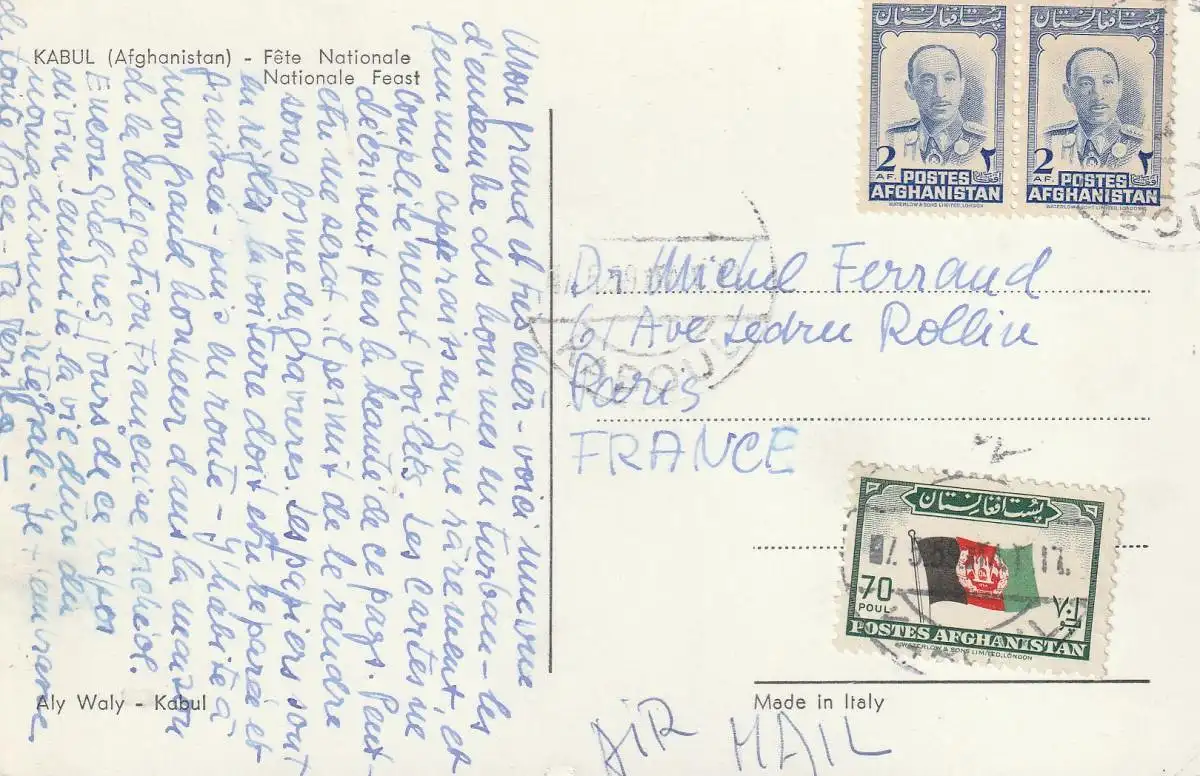 KABUL (Afghanistan) - Fête Nationale
Nationale Feast
Mon grand et très cher - voici une vue
d'ensemble des hommes en turban - les
femmes paraissent que rarement, et
complètement voilées. Les cartes ne
décrivent pas la beauté de ce pays. Peut-
être me serat-il permit de le
sous forme de gravures. Les papiers sont
en règle la voiture doit être réparée et
mis en route - J'habite à
mon grand bonheur dans la maison
de la délégation Française Archéol.
Encore quelques jours de ce repos
divin - ensuite la vie dure du
nomade intégrale. Je t'embrasse
Aly Waly - Kabul
پست افغانستان
2
AF.
٢
POSTES
AFGHANISTAN
WATERLOW & SONS LIMITED, LONDON
پست افغانستان
2
AF.
٢
POSTES
AFGHANISTAN
WATERLOW & SONS LIMITED, LONDON
Dr Michel Ferrand
61 Ave Ledru Rollin
Paris
FRANCE
KABOUL
پست افغانستان
70
POUL
٧٠
POSTES AFGHANISTAN
WATERLOW & SONS LIMITED, LONDON
Made in Italy
AIR MAIL